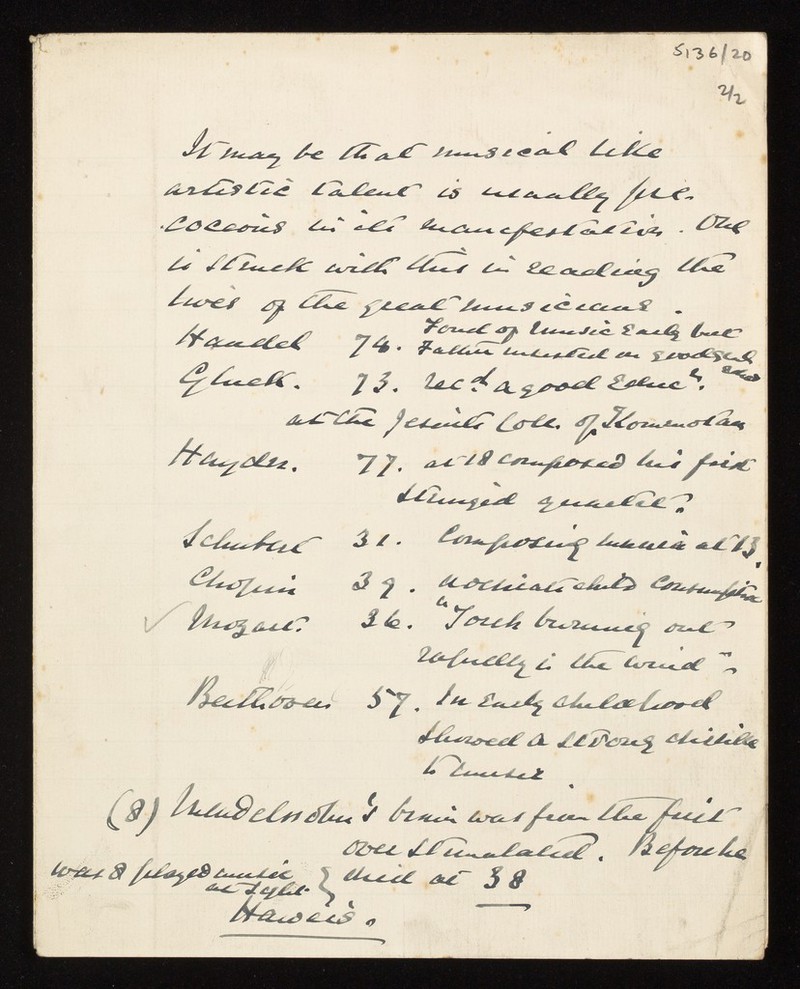 5136/20
2/2
It may be that musical like
artistic talent is usually pre-
cocious in its manifestation. One
is struck with this in reading the
lives of the great musicians.
Handel 74. Fond of Music Early but
Father insisted on good
Gluck. 73. recd a good Educn.
at the Jesuits Coll. of Komenotau
Haydn. 77. at 18 composed his first
stringed quartet.
Schubert 31. Composing mania at 13.
Chopin 39. a child Consumptive
Mozart. 36. "Torch burning out
rapidly in the wind".
Beethoven 57. In Early childhood
showed a strong dislike
to music
(8) Mendelssohn's brain was from the first
over stimulated. Before he
was 8 played music
at sight died at 38
Haweis.